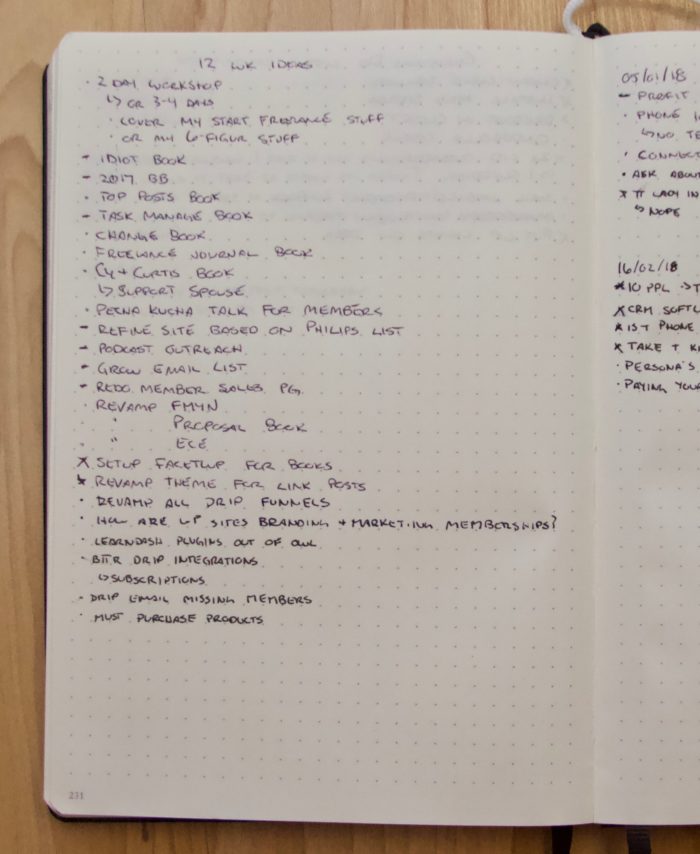 12 WK IDEAS
· 2 DAY WORKSHOP
↳ OR 3-4 DAYS
· COVER MY START FREELANCE STUFF
· OR MY 6-FIGUR STUFF
- IDIOT BOOK
- 2017 BB
· TOP POSTS BOOK
- TASK MANAGE BOOK
· CHANGE BOOK
· FREELANCE JOURNAL BOOK
· CY + CURTIS BOOK
↳ SUPPORT SPOUSE
· PETNA KUCHA TALK FOR MEMBERS
- REFINE SITE BASED ON PHILIPS LIST
- PODCAST OUTREACH
- GROW EMAIL LIST
- REDO MEMBER SALES PG
· REVAMP FMYN
· " PROPOSAL BOOK
· " ECE
X SETUP FACETWP FOR BOOKS
X REVAMP THEME FOR LINK POSTS
· REVAMP ALL DRIP FUNNELS
· HOW ARE WP SITES BRANDING + MARKETING MEMBERSHIPS?
· LEARNDASH PLUGINS OUT OF OWL
· BTTR DRIP INTEGRATIONS
↳ SUBSCRIPTIONS
· DRIP EMAIL MISSING MEMBERS
· MUST PURCHASE PRODUCTS
231
05/01/18
- PROFIT
· PHONE
↳ NO
· CONNECT
· ASK ABOU
X TT LADY IN
↳ NOPE
16/02/18
X 10 PPL →
X CRM SOFT
X IST PHONE
X TAKE +
· PERSONA'S
· PAYING YOU